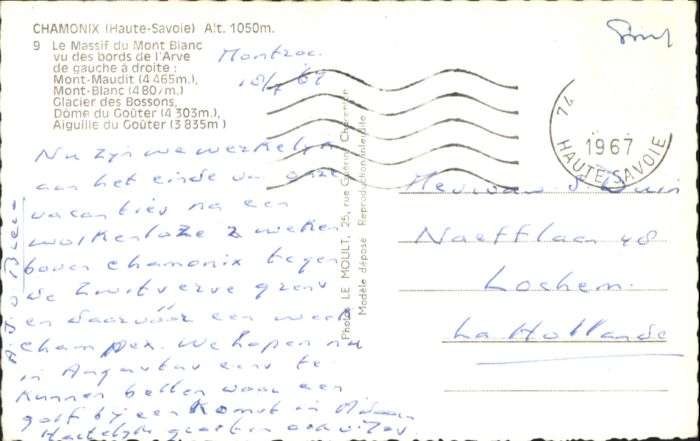 CHAMONIX (Haute-Savoie) Alt. 1050m.
9 Le Massif du Mont Blanc
vu des bords de l'Arve
de gauche à droite :
Mont-Maudit (4 465m.),
Mont-Blanc (4 807m.)
Glacier des Bossons,
Dôme du Goûter (4 303m.),
Aiguille du Goûter (3 835m)
Montroc
Nu zijn we werkelijk
aan het einde van onze
vacanties na een
wolkenloze 2 weken
boven Chamonix tegen
de Zwitserse grens
en daarvóór een week
Champex. We hopen nu
in Augustus eens te
kunnen bellen voor een
golf bij een komst in
Hartelijk groeten ook
Photo LE MOULT, 25, rue Guérin, Charenton
Modèle déposé Reproduction interdite
74
1967
HAUTE-SAVOIE
Mevrouw
Naefflaan 48
Lochem
La Hollande